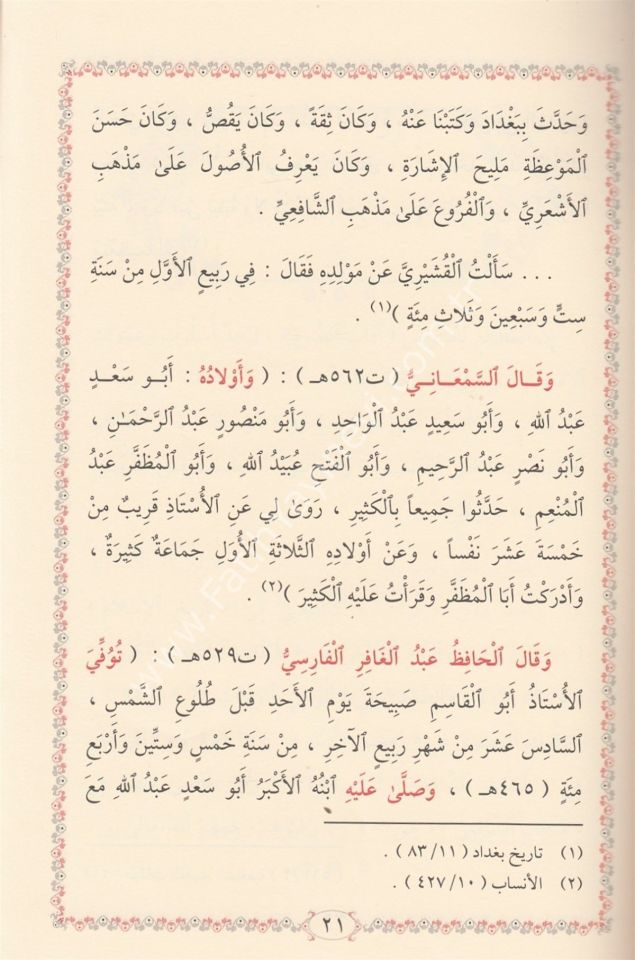 وَحَدَّثَ بِبَغْدَادَ وَكَتَبْنَا عَنْهُ ، وَكَانَ ثِقَةً ، وَكَانَ يَقُصُّ ، وَكَانَ حَسَنَ
ٱلْمَوْعِظَةِ مَلِيحَ ٱلإِشَارَةِ ، وَكَانَ يَعْرِفُ ٱلأُصُولَ عَلَىٰ مَذْهَبِ
ٱلأَشْعَرِيِّ ، وَٱلْفُرُوعَ عَلَىٰ مَذْهَبِ ٱلشَّافِعِيِّ .
... سَأَلْتُ ٱلْقُشَيْرِيَّ عَنْ مَوْلِدِهِ فَقَالَ : فِي رَبِيعٍ ٱلأَوَّلِ مِنْ سَنَةِ
سِتٍّ وَسَبْعِينَ وَثَلَاثِ مِئَةٍ )(١) .
وَقَالَ ٱلسَّمْعَانِيُّ ( ت٥٦٢هـ ) : ( وَأَوْلَادُهُ : أَبُو سَعْدٍ
عَبْدُ ٱللهِ ، وَأَبُو سَعِيدٍ عَبْدُ ٱلْوَاحِدِ ، وَأَبُو مَنْصُورٍ عَبْدُ ٱلرَّحْمَـٰنِ ،
وَأَبُو نَصْرٍ عَبْدُ ٱلرَّحِيمِ ، وَأَبُو ٱلْفَتْحِ عُبَيْدُ ٱللهِ ، وَأَبُو ٱلْمُظَفَّرِ عَبْدُ
ٱلْمُنْعِمِ ، حَدَّثُوا جَمِيعاً بِٱلْكَثِيرِ ، رَوَىٰ لِي عَنِ ٱلأُسْتَاذِ قَرِيبٌ مِنْ
خَمْسَةَ عَشَرَ نَفْساً ، وَعَنْ أَوْلَادِهِ ٱلثَّلَاثَةِ ٱلأُوَلِ جَمَاعَةٌ كَثِيرَةٌ ،
وَأَدْرَكْتُ أَبَا ٱلْمُظَفَّرِ وَقَرَأْتُ عَلَيْهِ ٱلْكَثِيرَ )(٢) .
وَقَالَ ٱلْحَافِظُ عَبْدُ ٱلْغَافِرِ ٱلْفَارِسِيُّ ( ت٥٢٩هـ ) : ( تُوُفِّيَ
ٱلأُسْتَاذُ أَبُو ٱلْقَاسِمِ صَبِيحَةَ يَوْمِ ٱلأَحَدِ قَبْلَ طُلُوعِ ٱلشَّمْسِ ،
ٱلسَّادِسَ عَشَرَ مِنْ شَهْرِ رَبِيعٍ ٱلآخِرِ ، مِنْ سَنَةِ خَمْسٍ وَسِتِّينَ وَأَرْبَعِ
مِئَةٍ ( ٤٦٥هـ ) ، وَصَلَّىٰ عَلَيْهِ ٱبْنُهُ ٱلأَكْبَرُ أَبُو سَعْدٍ عَبْدُ ٱللهِ مَعَ
(١) تاريخ بغداد ( ٨٣/١١ ) .
(٢) الأنساب ( ٤٢٧/١٠ ) .
٢١